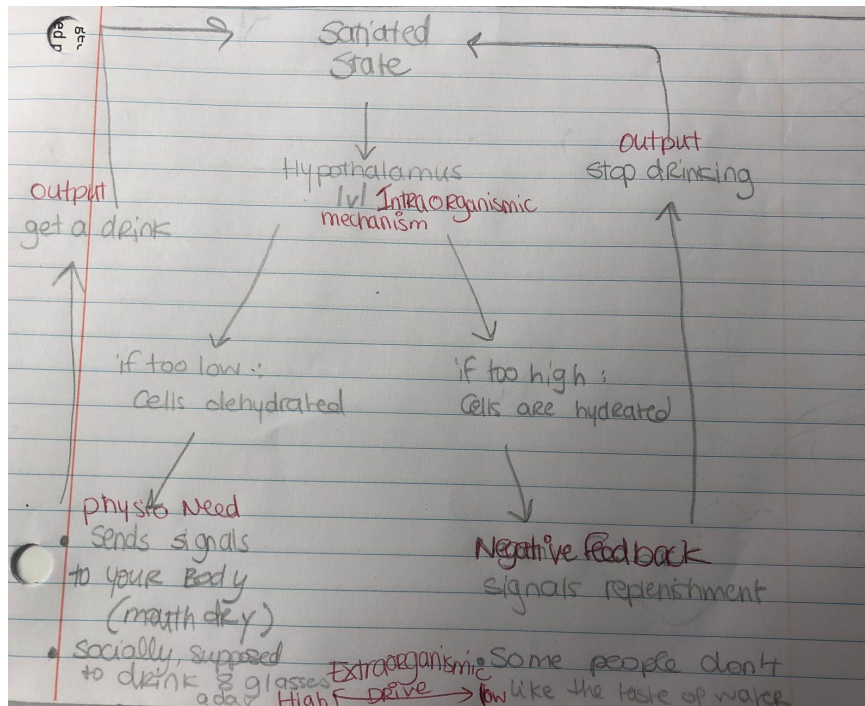 Satiated
State
Hypothalamus
lvl Intraorganismic
mechanism
output
get a drink
output
stop drinking
if too low :
Cells dehydrated
if too high :
Cells are hydrated
physio Need
• Sends signals
to your Body
(mouth dry)
• socially, supposed
to drink 8 glasses
a day
Negative feedback
signals replenishment
Extraorganismic
High ← DRIVE → low
• Some people don't
like the taste of water